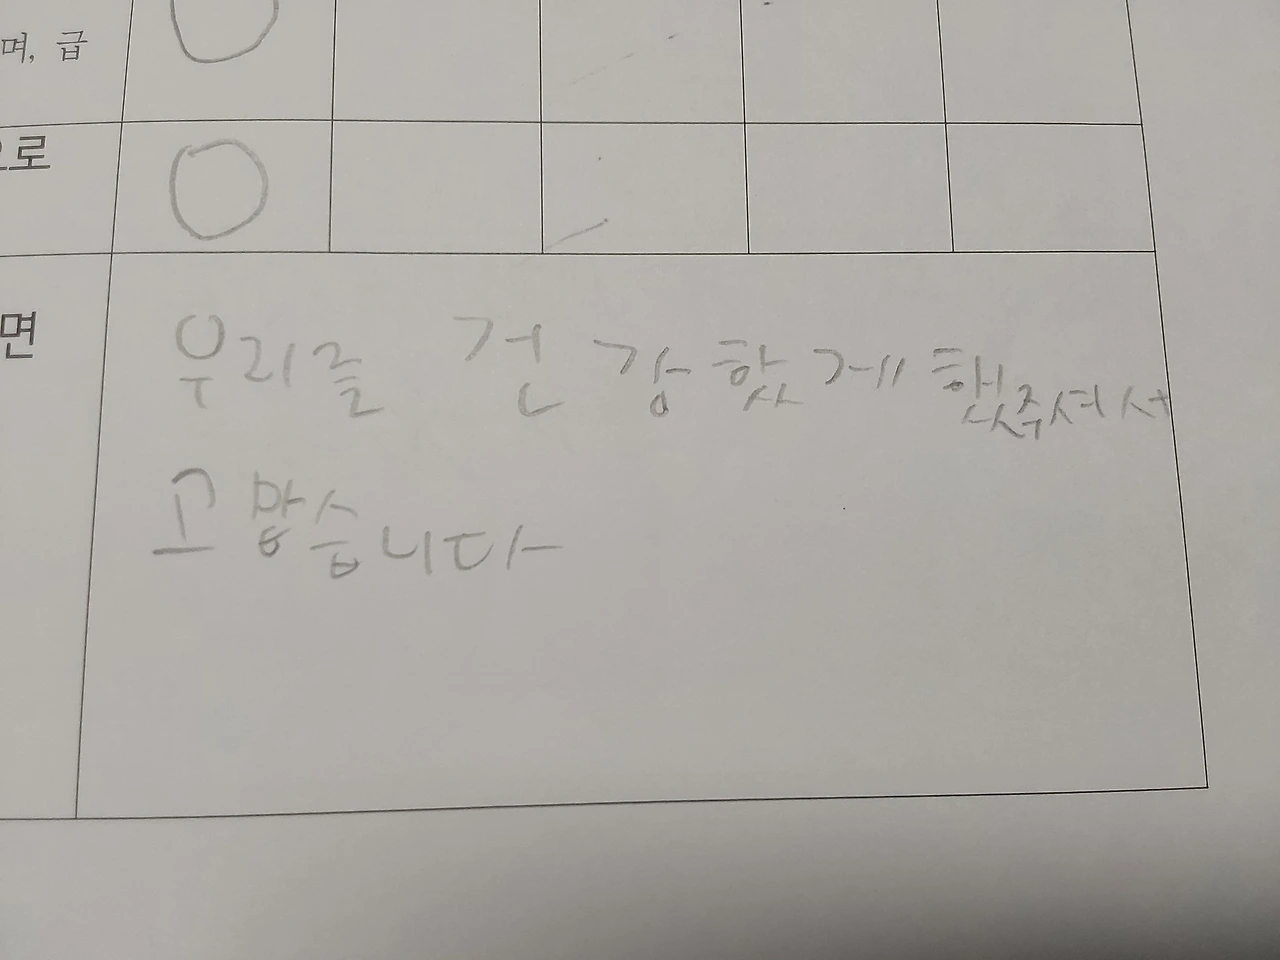 며, 급
으로
면
우리를 건강핬게 했주셔서
고맙습니다